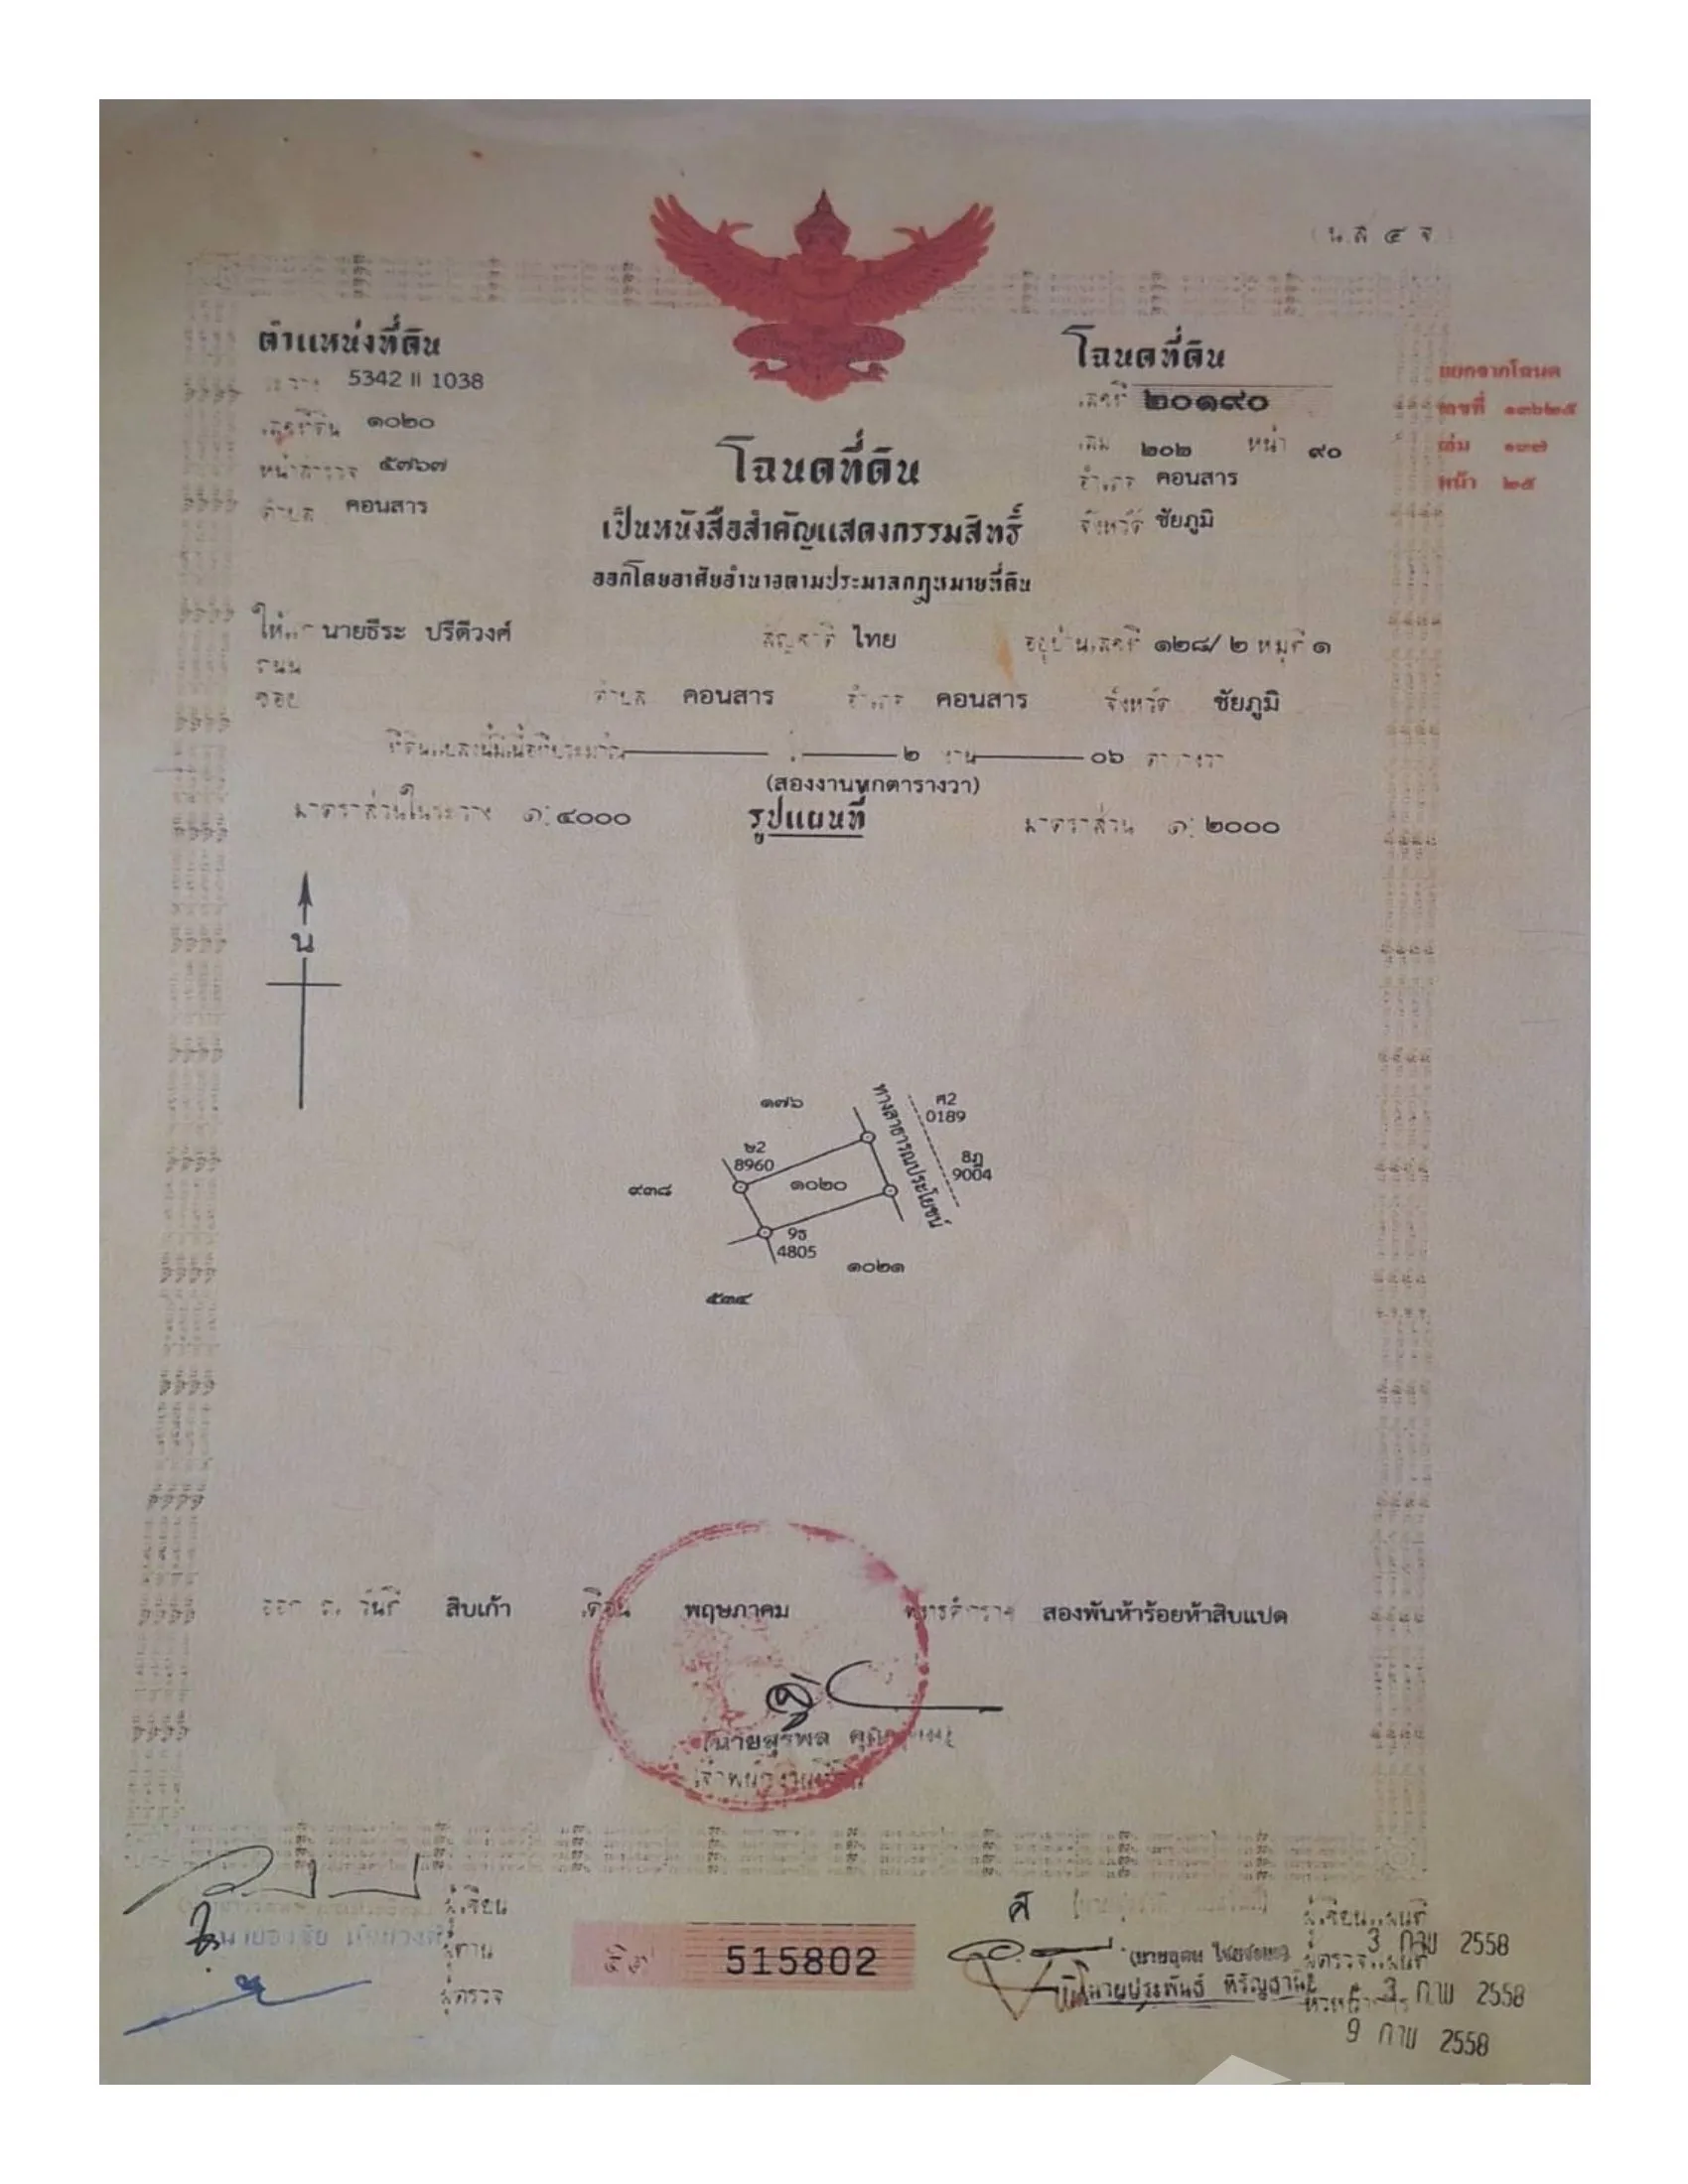 (น.ส. ๔ จ.)
ตำแหน่งที่ดิน
ระวาง 5342 II 1038
เลขที่ดิน ๑๐๒๐
หน้าสำรวจ ๕๗๖๗
ตำบล คอนสาร
โฉนดที่ดิน
เลขที่ ๒๐๑๙๐
เล่ม ๒๐๒ หน้า ๙๐
อำเภอ คอนสาร
จังหวัด ชัยภูมิ
แยกจากโฉนด
เลขที่ ๑๓๖๒๕
เล่ม ๑๓๗
หน้า ๒๕
โฉนดที่ดิน
เป็นหนังสือสำคัญแสดงกรรมสิทธิ์
ออกโดยอาศัยอำนาจตามประมวลกฎหมายที่ดิน
ให้แก่ นายธีระ ปรีดีวงศ์ สัญชาติ ไทย อยู่บ้านเลขที่ ๑๒๘/๒ หมู่ที่ ๑
ถนน
ซอย ตำบล คอนสาร อำเภอ คอนสาร จังหวัด ชัยภูมิ
ที่ดินแปลงนี้มีเนื้อที่ประมาณ ไร่ ๒ งาน ๐๖ ตารางวา
(สองงานหกตารางวา)
มาตราส่วนในระวาง ๑:๔๐๐๐ รูปแผนที่ มาตราส่วน ๑:๒๐๐๐
น
๑๗๖
ทางสาธารณประโยชน์
ศ2
0189
๒2
8960
8ฎ
9004
๙๓๘
๑๐๒๐
9ธ
4805
๑๐๒๑
๕๓๔
ออก ณ วันที่ สิบเก้า เดือน พฤษภาคม พุทธศักราช สองพันห้าร้อยห้าสิบแปด
(นายสุรพล
เจ้าพนักงานที่ดิน
ผู้เขียน
ผู้ทาน
ผู้ตรวจ
515802
ผู้เขียนแผนที่
3 กพ 2558
ผู้ตรวจแผนที่
นายประพันธ์ หิรัญธานี
3 กพ 2558
9 กพ 2558